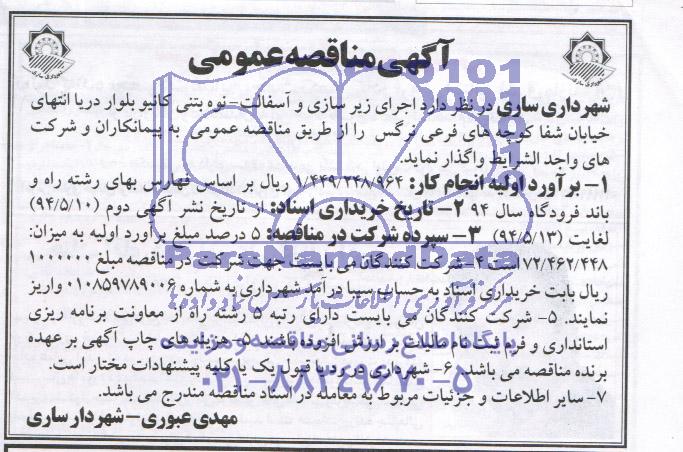 آگهی مناقصه عمومی
شهرداری ساری در نظر دارد اجرای زیر سازی و آسفالت-نوه بتنی کانیو بلوار دریا انتهای
خیابان شفا کوچه های فرعی نرگس را از طریق مناقصه عمومی به پیمانکاران و شرکت
های واجد الشرایط واگذار نماید.
۱- برآورد اولیه انجام کار: ۱/۴۴۹/۲۴۸/۹۶۴ ریال بر اساس فهارس بهای رشته راه و
باند فرودگاه سال ۹۴ ۲- تاریخ خریداری اسناد: از تاریخ نشر آگهی دوم (۹۴/۵/۱۰)
لغایت (۹۴/۵/۱۳) ۳- سپرده شرکت در مناقصه: ۵ درصد مبلغ برآورد اولیه به میزان:
۷۲/۴۶۲/۴۴۸ است ۴- شرکت کنندگان می بایست جهت شرکت در مناقصه مبلغ ۱۰۰۰۰۰۰
ریال بابت خریداری اسناد به حساب سیبا درآمد شهرداری به شماره ۰۱۰۸۵۹۷۸۹۰۰۶ واریز
نمایند. ۵- شرکت کنندگان می بایست دارای رتبه ۵ رشته راه از معاونت برنامه ریزی
استانداری و فرم ثبت نام مالیات بر ارزش افزوده باشند. ۵- هزینه های چاپ آگهی بر عهده
برنده مناقصه می باشد. ۶- شهرداری در رد یا قبول یک یا کلیه پیشنهادات مختار است.
۷- سایر اطلاعات و جزئیات مربوط به معامله در اسناد مناقصه مندرج می باشد.
مهدی عبوری- شهردار ساری
ParsNamadData
مرکز فرآوری اطلاعات پارس نماد داده ها
پایگاه اطلاع رسانی مناقصه و مزایده
۰۲۱-۸۸۳۴۹۶۷۰-۵